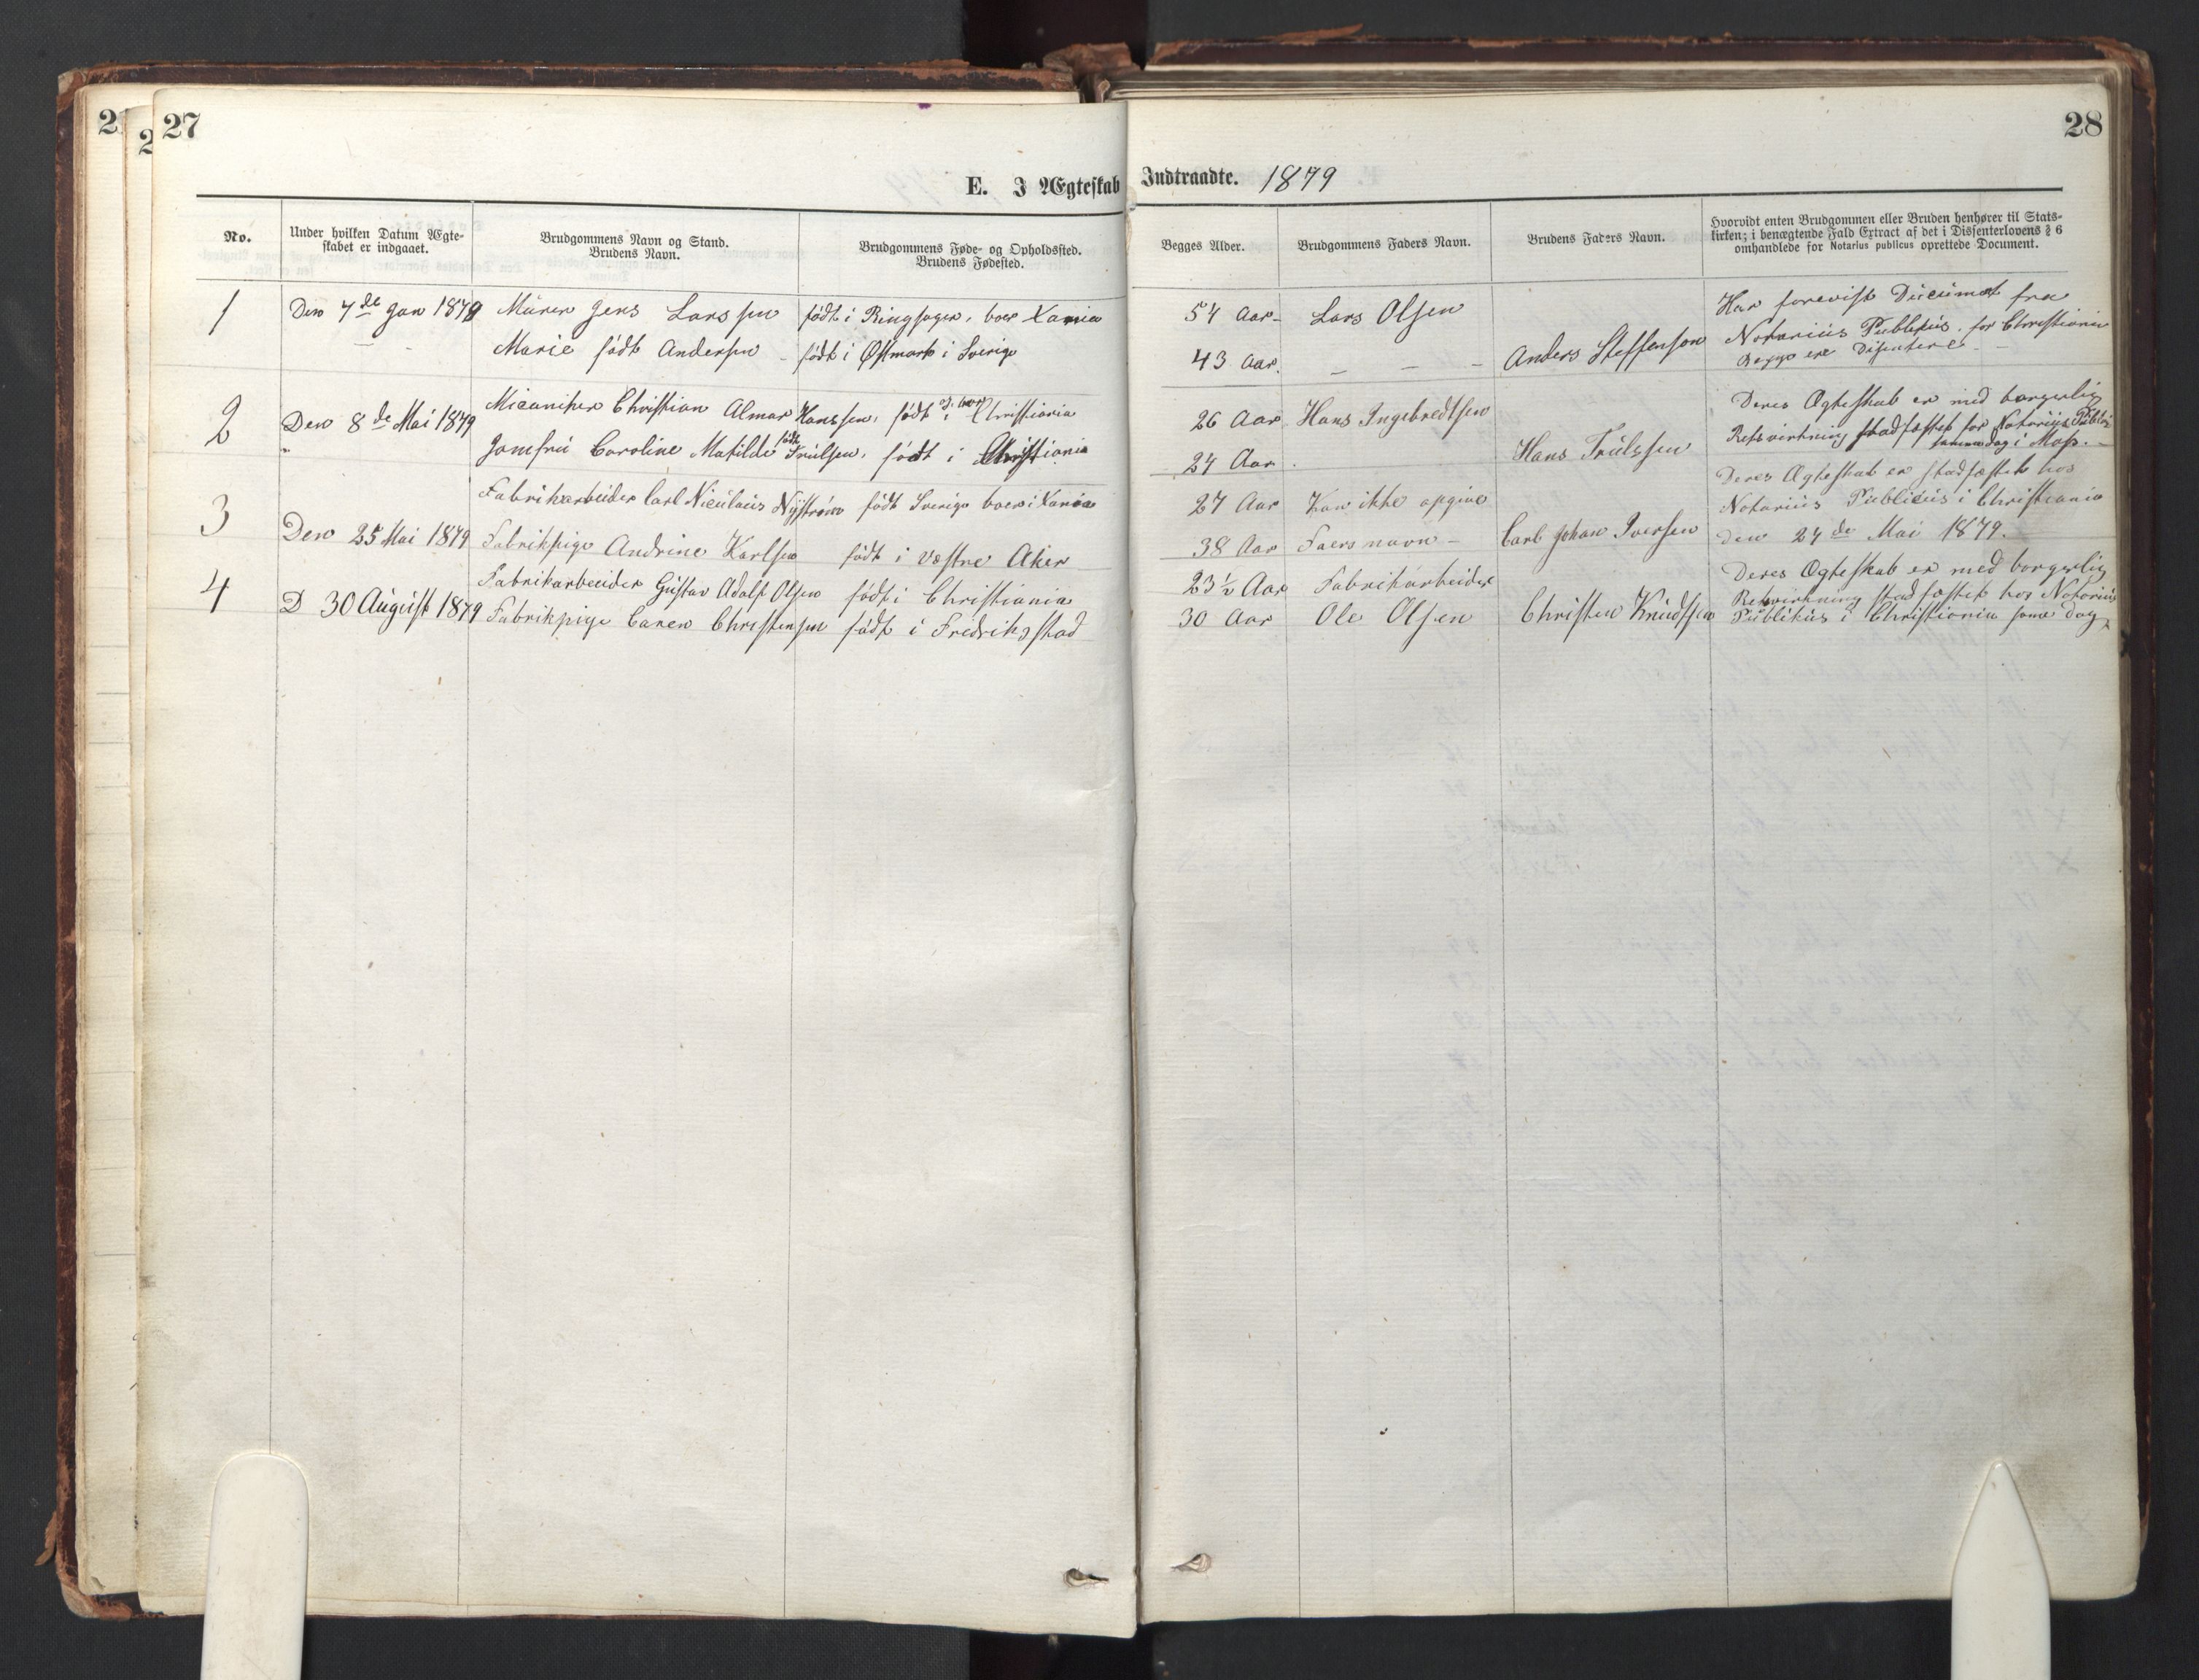 27
28
E. I Ægteskab Indtraadte. 1879
No.
Under hvilken Datum Ægte-
skabet er indgaaet.
Brudgommens Navn og Stand.
Brudens Navn.
Brudgommens Føde- og Opholdssted.
Brudens Fødested.
Begges Alder.
Brudgommens Faders Navn.
Brudens Faders Navn.
Hvorvidt enten Brudgommen eller Bruden henhører til Stats-
kirken; i benægtende Fald Extract af det i Dissenterlovens § 6
omhandlede for Notarius publicus oprettede Document.
1
Den 7de Jan 1879
Murer Jens Larssen
Marie født Andersen
født i Ringsager, boer Xania
født i Østmark i Sverige
54 Aar
43 Aar.
Lars Olsen
Anders Steffenson
Har forevist Document fra
Notarius Publikus for Christiania
Begge ere Disentere
2
Den 8de Mai 1879
Micaniker Christian Almar Hanssen, født og boer i Christiania
Jomfru Caroline Matilde født Trulsen, født i Christiania
26 Aar
24 Aar
Hans Ingebredtsen
Hans Trulssen
Deres Ægteskab er med borgerlig
Retsvirkning stadfæstet for Notarius Public
samme dag i Moss.
3
Den 25 Mai 1879
Fabrikarbeider Carl Niculaus Nyström født Sverige boer i Xania
Fabrikpige Andrine Karlsen født i Vestre Aker
27 Aar
38 Aar
Kan ikke opgive
Faers navn
Carl Johan Iversen
Deres Ægteskab er stadfæstet hos
Notarius Publicus i Christiania
den 24de Mai 1879.
4
D 30 August 1879
Fabrikarbeider Gustav Adolf Olsen født i Christiania
Fabrikpige Caren Christensen født i Fredrikstad
23½ Aar
30 Aar
Fabrikarbeider
Ole Olsen
Christen Knudsen
Deres Ægteskab er med borgerlig
Retsvirkning stadfæstet hos Notarius
Publikus i Christiania same dag